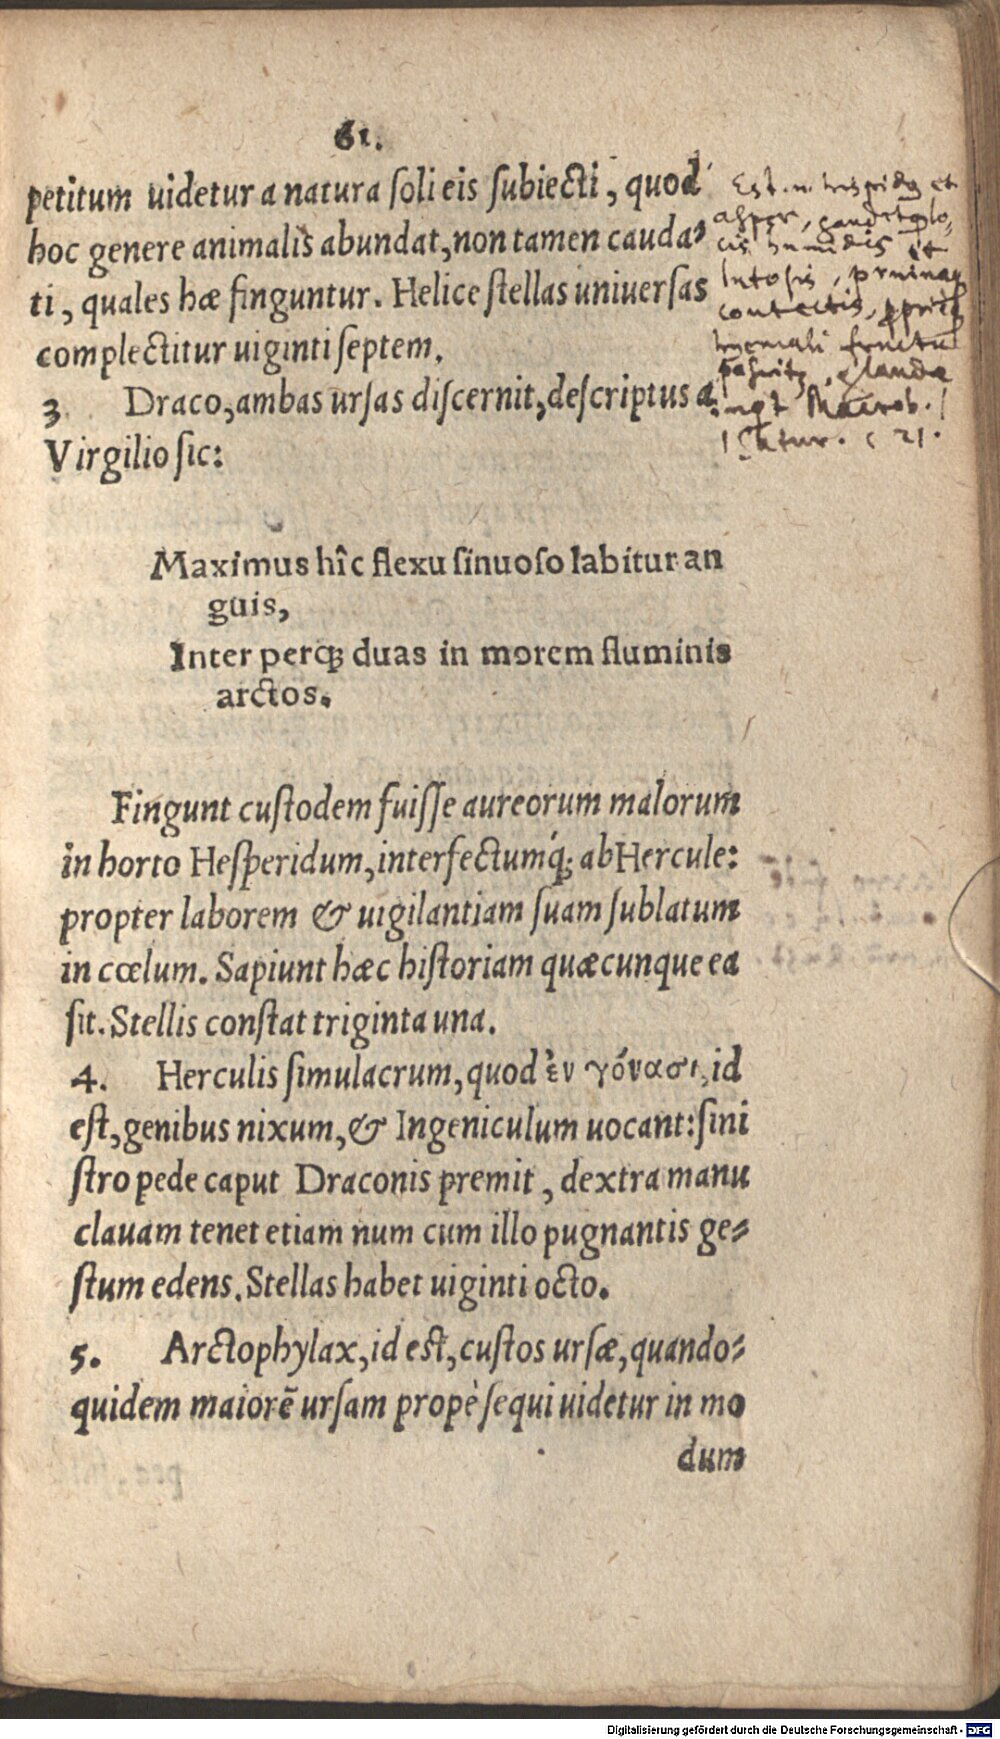 61.
petitum uidetur a natura soli eis subiecti, quod
hoc genere animalis abundat, non tamen cauda⸗
ti, quales hæ finguntur. Helice stellas uniuersas
complectitur uiginti septem.
3 Draco, ambas ursas discernit, descriptus a
Virgilio sic:
Maximus hîc flexu sinuoso labitur an
guis,
Inter perq́; duas in morem fluminis
arctos.
Fingunt custodem fuisse aureorum malorum
in horto Hesperidum, interfectumq́; ab Hercule:
propter laborem & uigilantiam suam sublatum
in cœlum. Sapiunt hæc historiam quæcunque ea
sit. Stellis constat triginta una.
4. Herculis simulacrum, quod ἐν γόνασι, id
est, genibus nixum, & Ingeniculum uocant: sini
stro pede caput Draconis premit, dextra manu
clauam tenet etiam num cum illo pugnantis ge⸗
stum edens. Stellas habet uiginti octo.
5. Arctophylax, id est, custos ursæ, quando⸗
quidem maiorē ursam propè sequi uidetur in mo
dum
Est .n. et
asper, lo
cis humidis et
lutosis, pruina
contectis,
hyemali fructu
glande
inqt Macrob. 1
Satur. c 21.
Digitalisierung gefördert durch die Deutsche Forschungsgemeinschaft - DFG